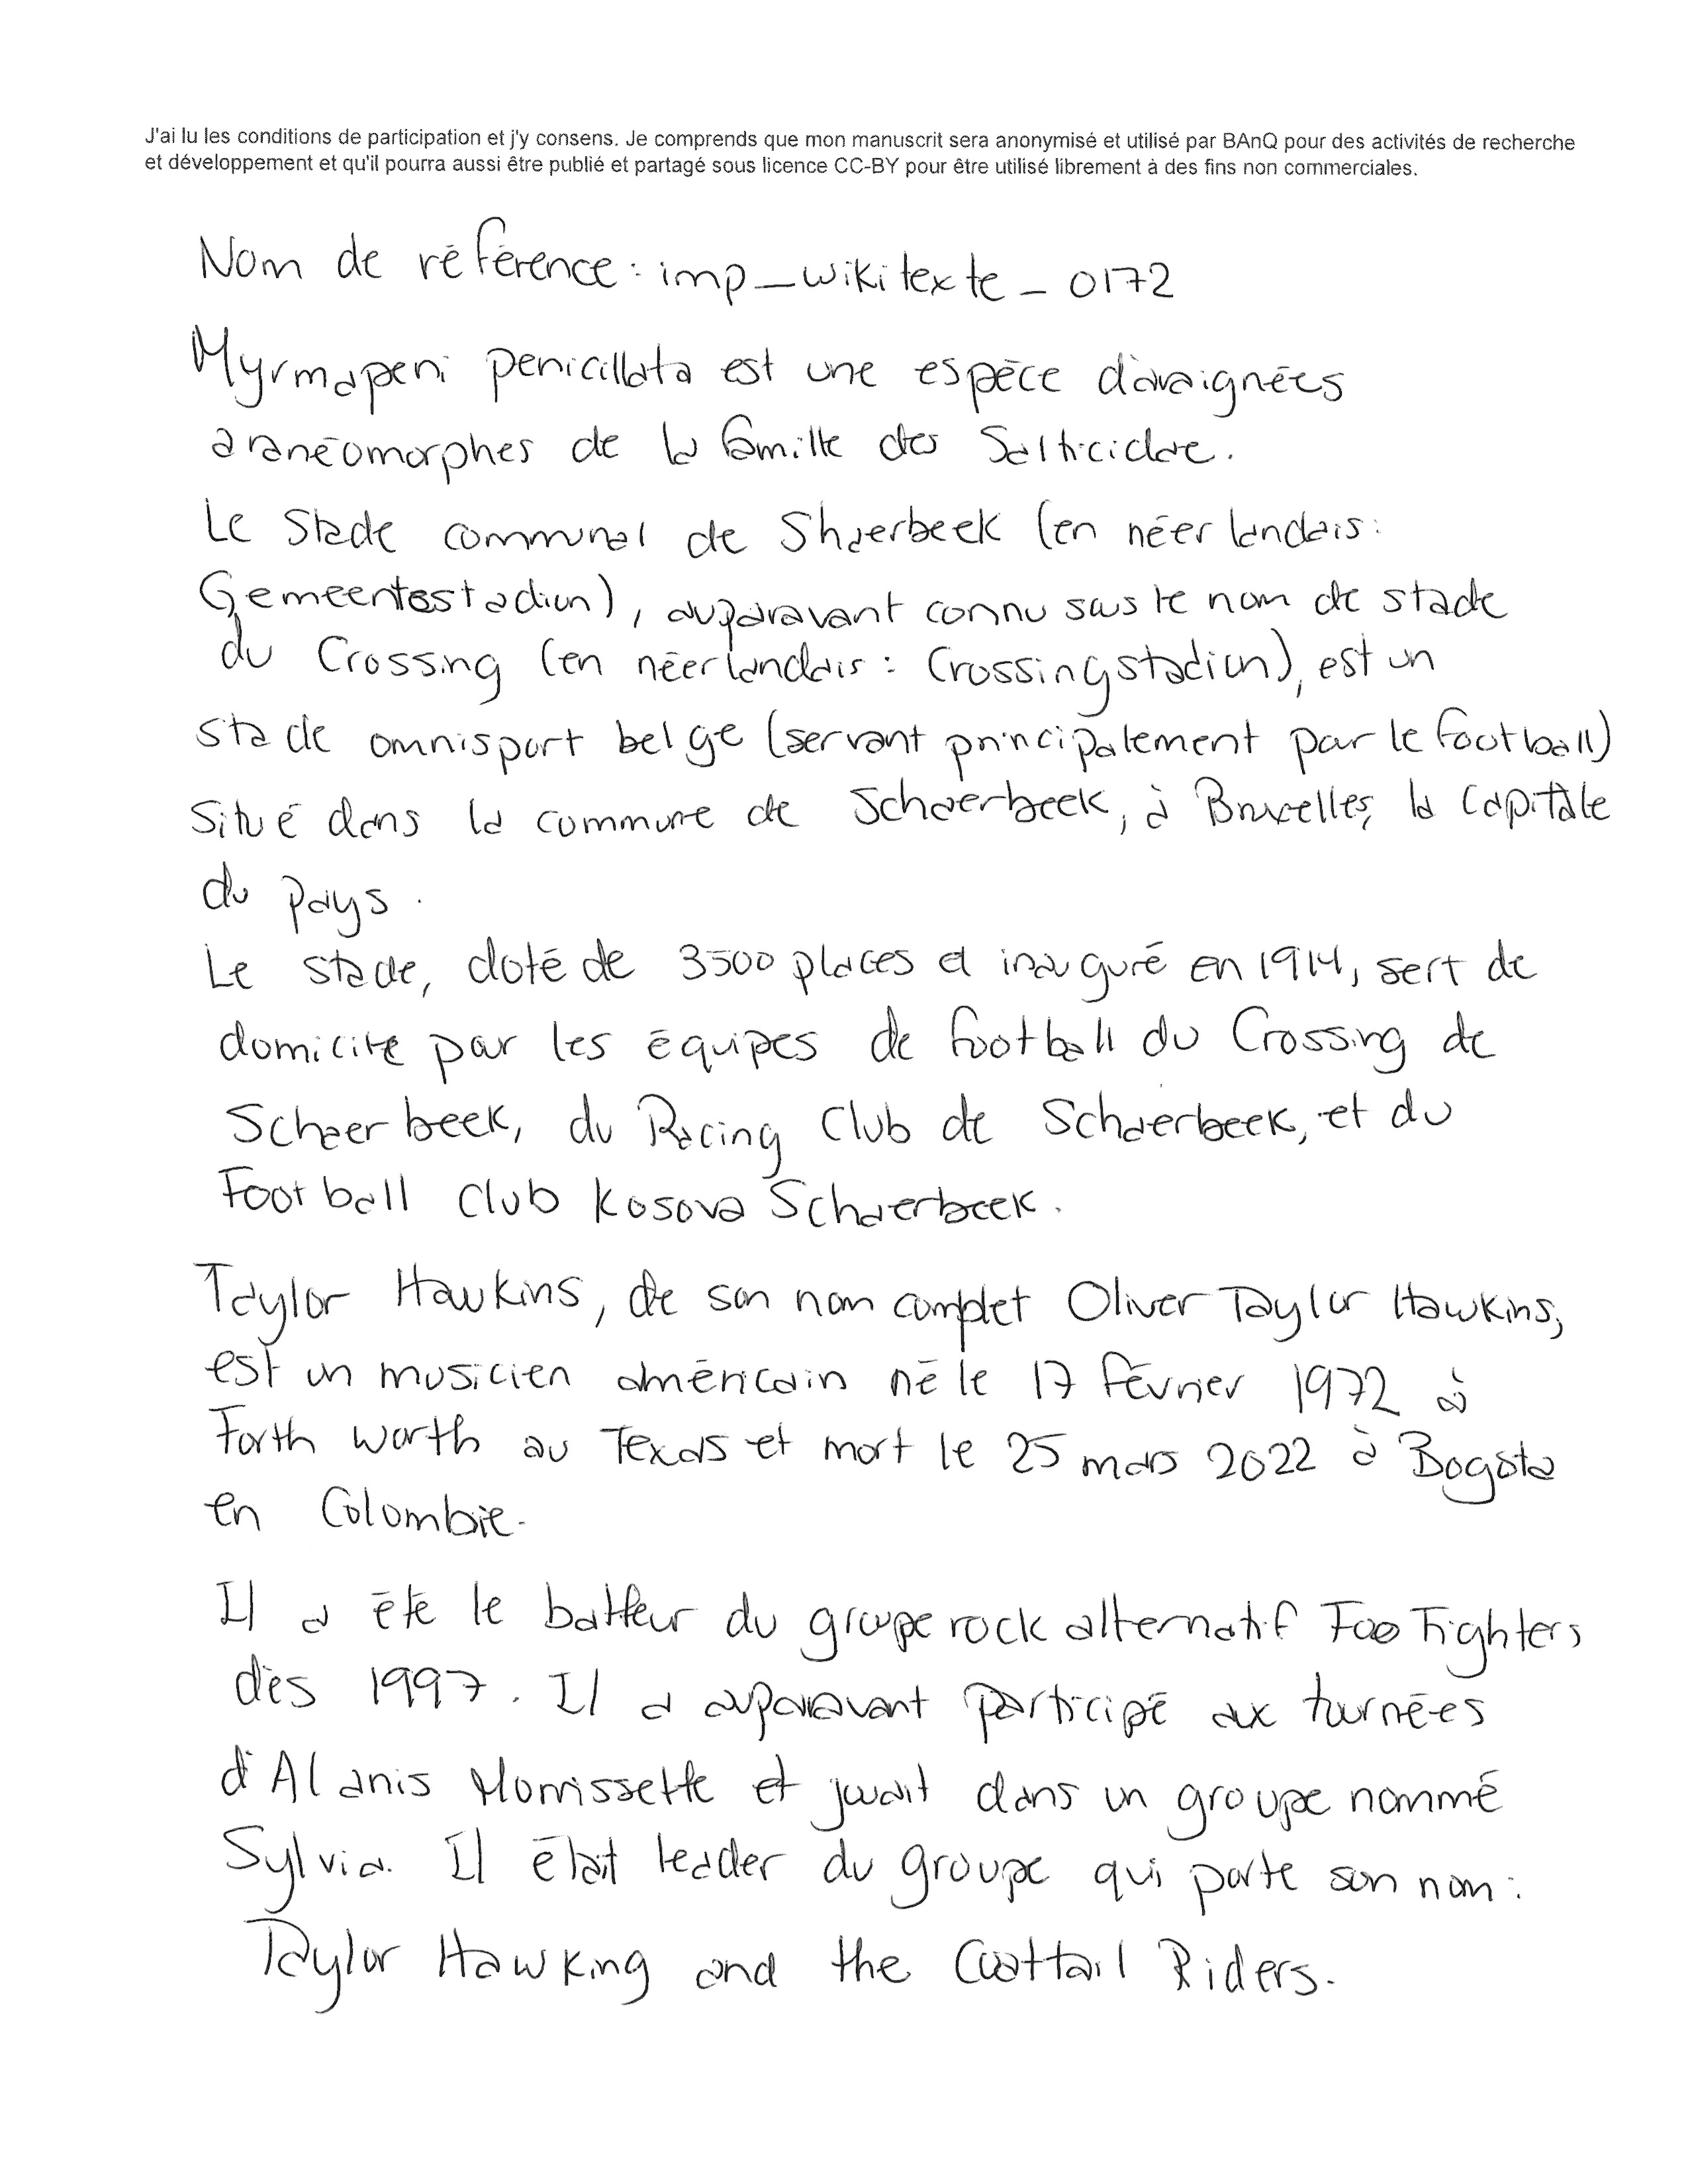 J'ai lu les conditions de participation et j'y consens. Je comprends que mon manuscrit sera anonymisé et utilisé par BAnQ pour des activités de recherche
et développement et qu'il pourra aussi être publié et partagé sous licence CC-BY pour être utilisé librement à des fins non commerciales.
Nom de référence : imp_wikitexte_0172
Myrmapeni penicillata est une espèce d'araignées
aranéomorphes de la famille des Salticidae.
Le Stade communal de Shaerbeek (en néerlandais :
Gemeentestadion), auparavant connu sous le nom de stade
du Crossing (en néerlandais : Crossingstadion), est un
stade omnisport belge (servant principalement par le football)
situé dans la commune de Schaerbeek, à Bruxelles, la capitale
du pays.
Le stade, doté de 3500 places et inauguré en 1914, sert de
domicile par les équipes de football du Crossing de
Schaerbeek, du Racing Club de Schaerbeek, et du
Football Club Kosova Schaerbeek.
Taylor Hawkins, de son nom complet Oliver Taylor Hawkins,
est un musicien américain né le 17 février 1972 à
Forth Worth au Texas et mort le 25 mars 2022 à Bogota
en Colombie.
Il a été le batteur du groupe rock alternatif Foo Fighters
dès 1997. Il a auparavant participé aux tournées
d'Alanis Morrissette et jouait dans un groupe nommé
Sylvia. Il était leader du groupe qui porte son nom :
Taylor Hawking and the Coattail Riders.